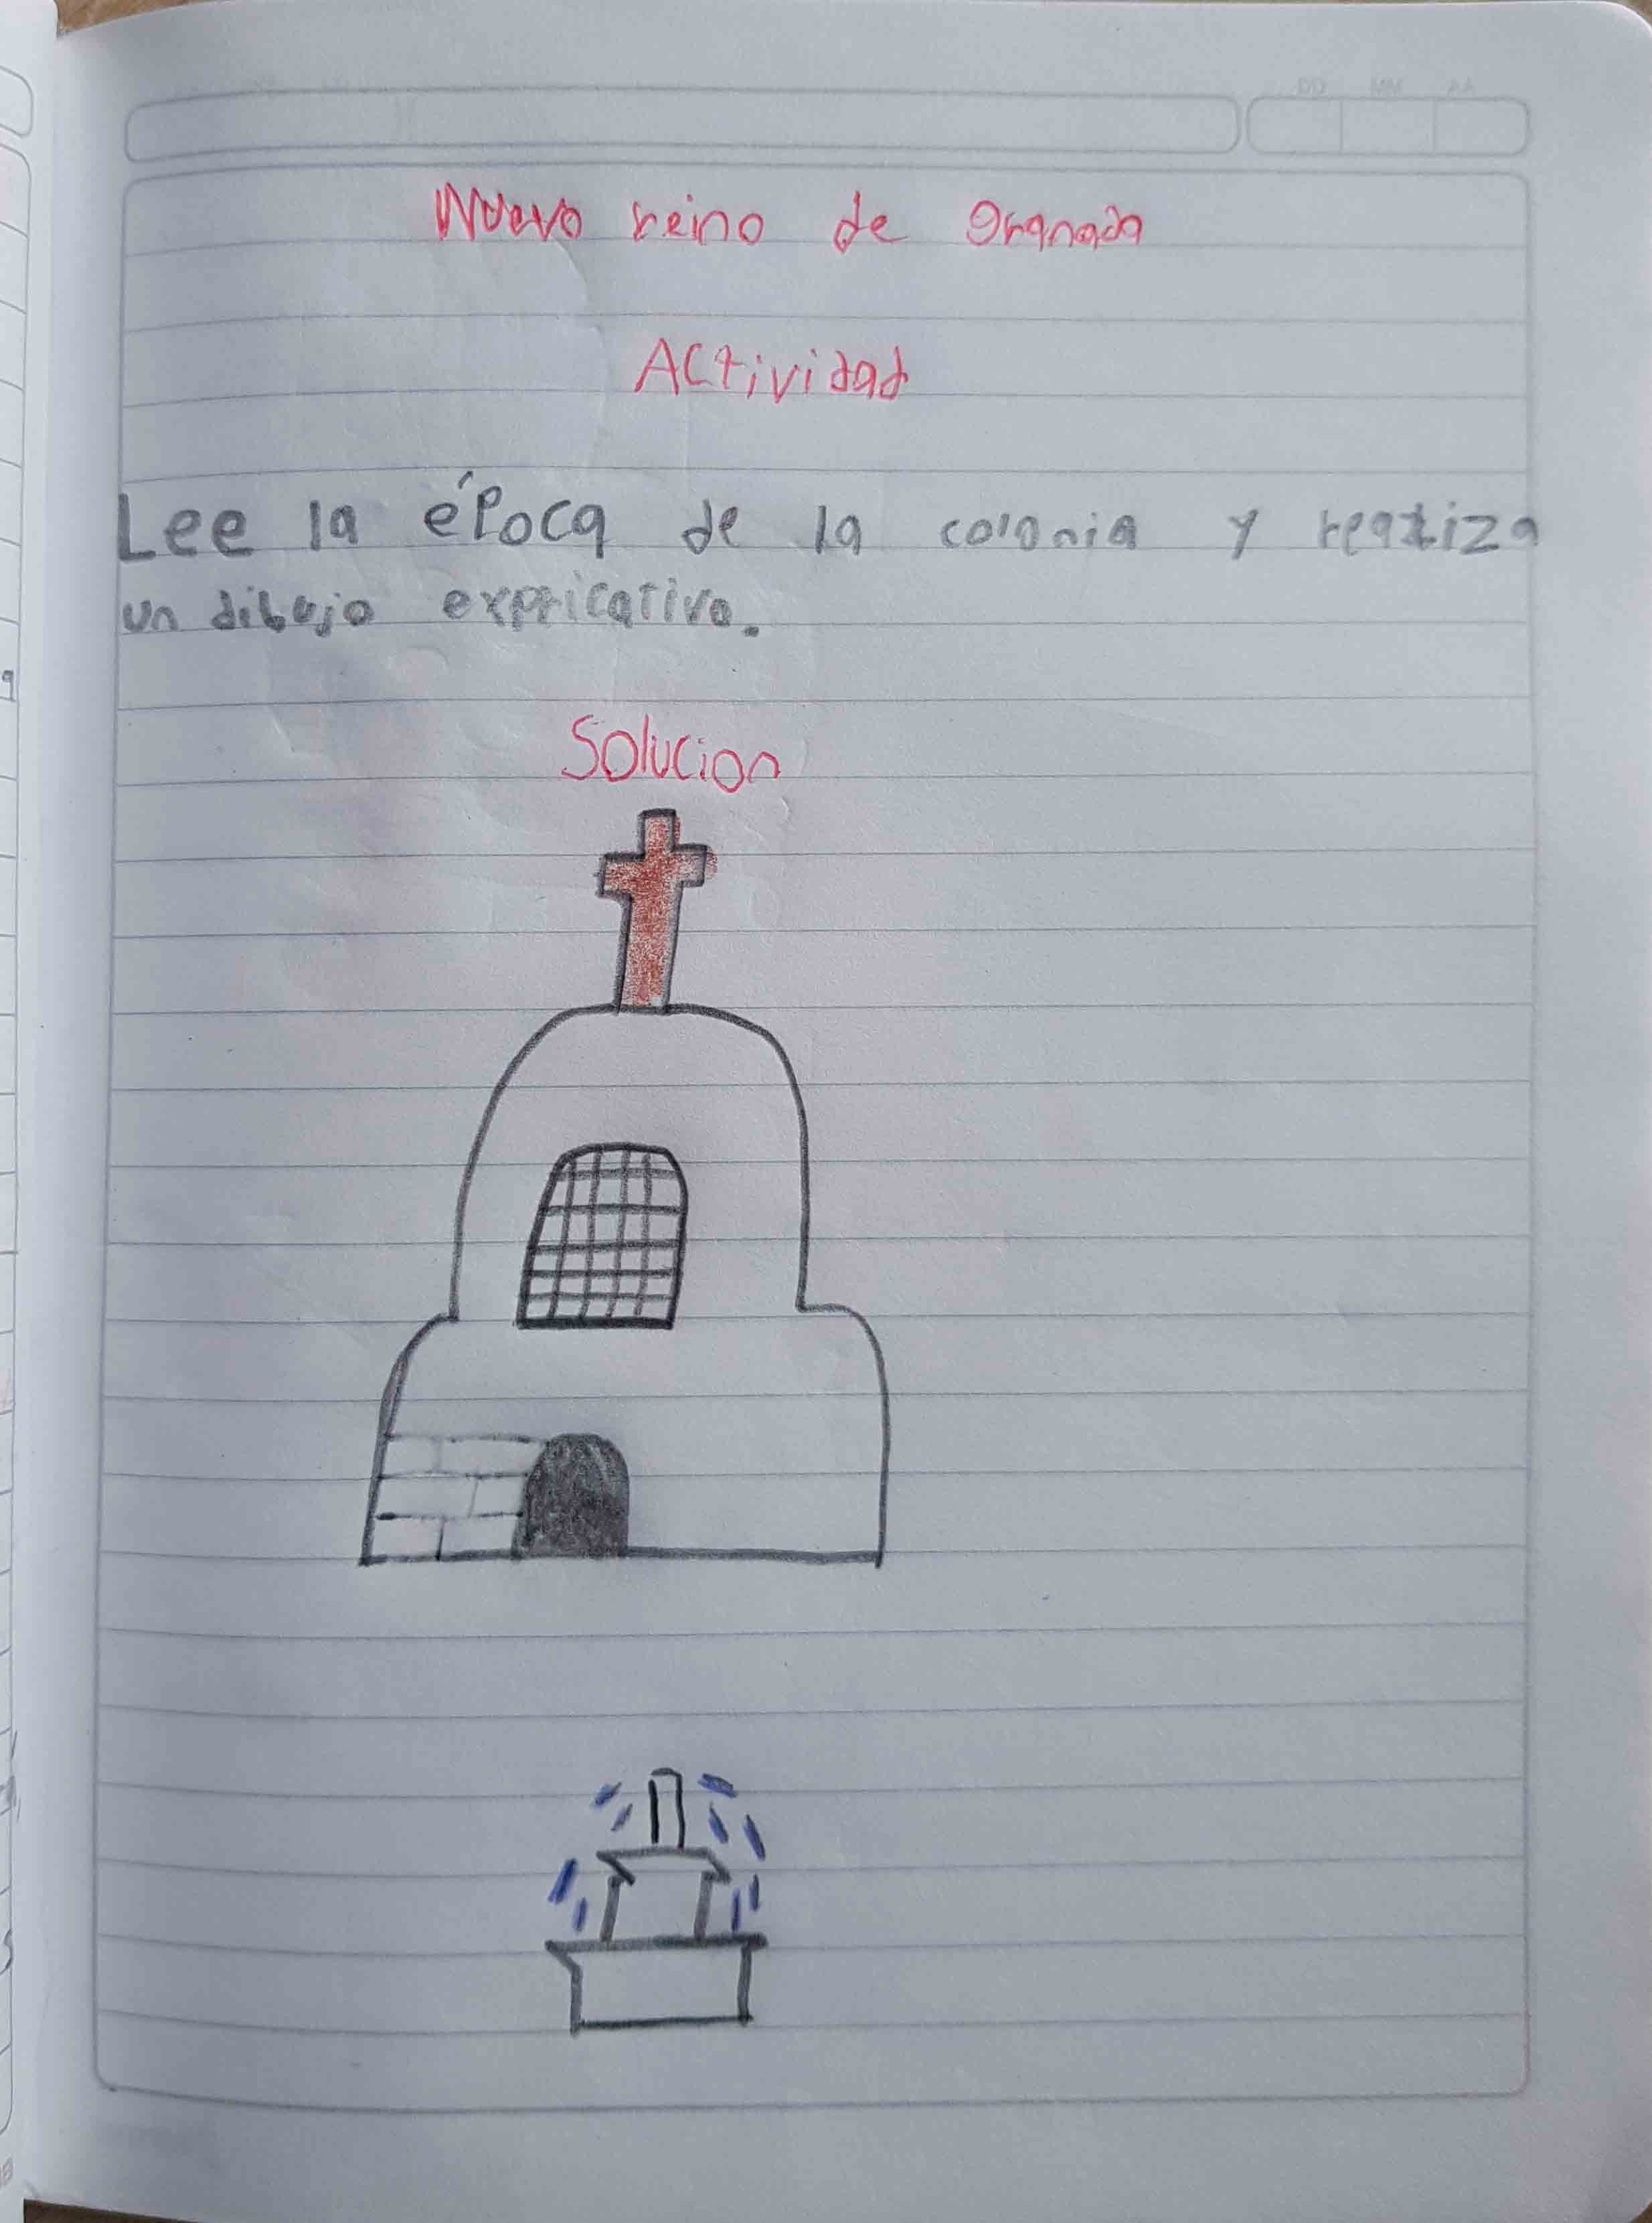 DD MM AA
Nuevo reino de granada
Actividad
Lee la época de la colonia y realiza
un dibujo explicativo.
Solucion